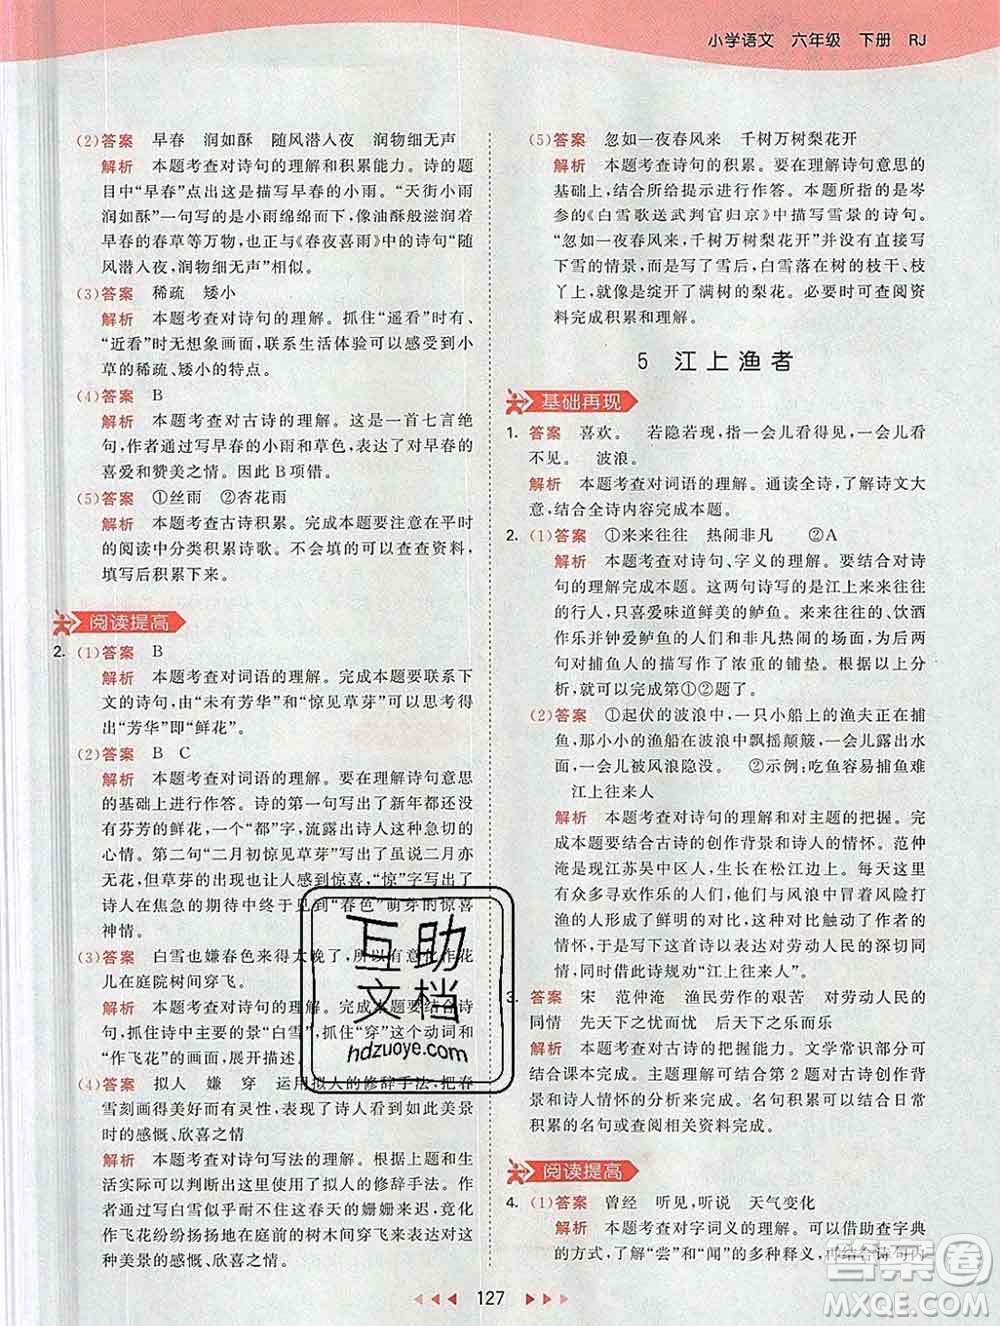 小学语文 六年级 下册 RJ
(2)答案 早春 润如酥 随风潜入夜 润物细无声
解析 本题考查对诗句的理解和积累能力。诗的题
目中“早春”点出这是描写早春的小雨。“天街小雨
润如酥”一句写的是小雨绵绵如情,像油酥般滋润着
早春的春草等万物,它与《春夜喜雨》中的诗句“随
风潜入夜,润物细无声”相似。
(3)答案 稀疏 矮小
解析 本题考查对诗句的理解。抓住“遥看”时有,
“近看”时无想象画面,联系生活体验可以感受到小
草的稀疏、矮小的特点。
(4)答案 B
解析 本题考查对古诗的理解。这是一首七言绝
句,作者通过写早春的小雨和草色,表达了对早春的
喜爱和赞美之情。因此B项错。
(5)答案 ①丝雨 ②杏花雨
解析 本题考查古诗积累。完成本题要注意在平时
的阅读中分类积累诗歌。不会的可以查查资料,
填写后积累下来。
阅读提高
2. (1)答案 B
解析 本题考查对词语的理解。完成本题要联系下
文的诗句,由“未有芳华”和“惊见草芽”可以看出
“芳华”即“鲜花”。
(2)答案 B C
解析 本题考查对词语的理解。要在理解诗句意思
的基础上进行作答。诗的第一句写出了新年都还没
有芬芳的鲜花,一个“都”字,流露出诗人急切的
心情。第二句“二月初惊见草芽”写出了虽说二月
无花,但草芽的出现也让人感到惊喜,“惊”字写出了
诗人在焦急的期待中终于见到“春色”萌芽的惊喜
神情。
(3)答案 白雪也嫌春色来得太晚了,所以有意化作花
儿在庭院树间穿飞。
解析 本题考查对诗句的理解。完成本题要读懂诗
句,抓住诗中主要的景“白雪”,抓住“穿”这个动词和
“作飞花”的画面,展开描述。
(4)答案 拟人 嫌 穿 运用拟人的修辞手法,把春
雪刻画得美好而有灵性,表达了诗人看到如此美景
时的感慨、欣喜之情
解析 本题考查对诗句写法的理解。根据上题和生
活实际可以判断出这里使用了拟人的修辞手法。诗
中描写了白雪似乎耐不住这春天的姗姗来迟,竟化
作飞花纷纷扬扬地在庭前的树木间穿飞来表达对这
种美景的感慨、欣喜之情。
(5)答案 忽如一夜春风来 千树万树梨花开
解析 本题考查诗句的积累。要在理解诗句意思的
基础上,结合所给提示进行作答。本题所指的是岑
参的《白雪歌送武判官归京》中描写雪景的诗句。
“忽如一夜春风来,千树万树梨花开”并没有直接写
下雪的情景,而是写了雪后,白雪落在树的枝干、枝
丫上,就像是绽开了满树的梨花。必要时可查阅资
料完成积累和理解。
5 江上渔者
基础再现
1. 答案 喜欢。 若隐若现,指一会儿看得见,一会儿看
不见。 波浪。
解析 本题考查对词语的理解。通读全诗,了解诗文大
意,结合全诗内容完成本题。
2. (1)答案 ①来来往往 热闹非凡 ②A
解析 本题考查对诗句、字义的理解。要结合对诗
句的理解完成本题。这两句诗写的是江上来来往往
的行人,只喜爱味道鲜美的鲈鱼。来来往往的、饮酒
作乐并钟爱鲈鱼的人们和非凡热闹的场面,为后两
句对捕鱼人的描写作了浓重的铺垫。根据以上分
析,就可以完成第①②题了。
(2)答案 ①起伏的波浪中,一只小船上的渔夫正在捕
鱼,那小小的渔船在波浪中飘摇颠簸,一会儿露出水
面,一会儿被风浪淹没。 ②示例:吃鱼容易捕鱼难
江上往来人
解析 本题考查对诗句的理解和对主题的把握。完
成本题要结合古诗的创作背景和诗人的情怀。范仲
淹是现江苏吴中区人,生长在松江边上。当时,那里
有众多寻欢作乐的人们,他们与风浪中冒着风险打
渔的人形成了鲜明的对比,这种对比触动了作者的
情怀,于是写下这首诗以表达对劳动人民的深切同
情,同时借此诗规劝“江上往来人”。
3. 答案 宋 范仲淹 渔民劳作的艰苦 对劳动人民的
同情 先天下之忧而忧 后天下之乐而乐
解析 本题考查对古诗的把握能力。文学常识部分可
结合课本完成。主题理解可结合第2题对古诗创作背
景和诗人情怀的分析来完成。名句积累可以结合日常
积累的名句或查阅相关资料完成。
阅读提高
4. (1)答案 曾经 听见,听说 天气变化
解析 本题考查对字词义的理解。可以借助查字典
的方式,了解“尝”和“闻”的多种释义,再结合诗句内
互助
文档
hdzuoye.com
答案圈
MXQE.COM
127